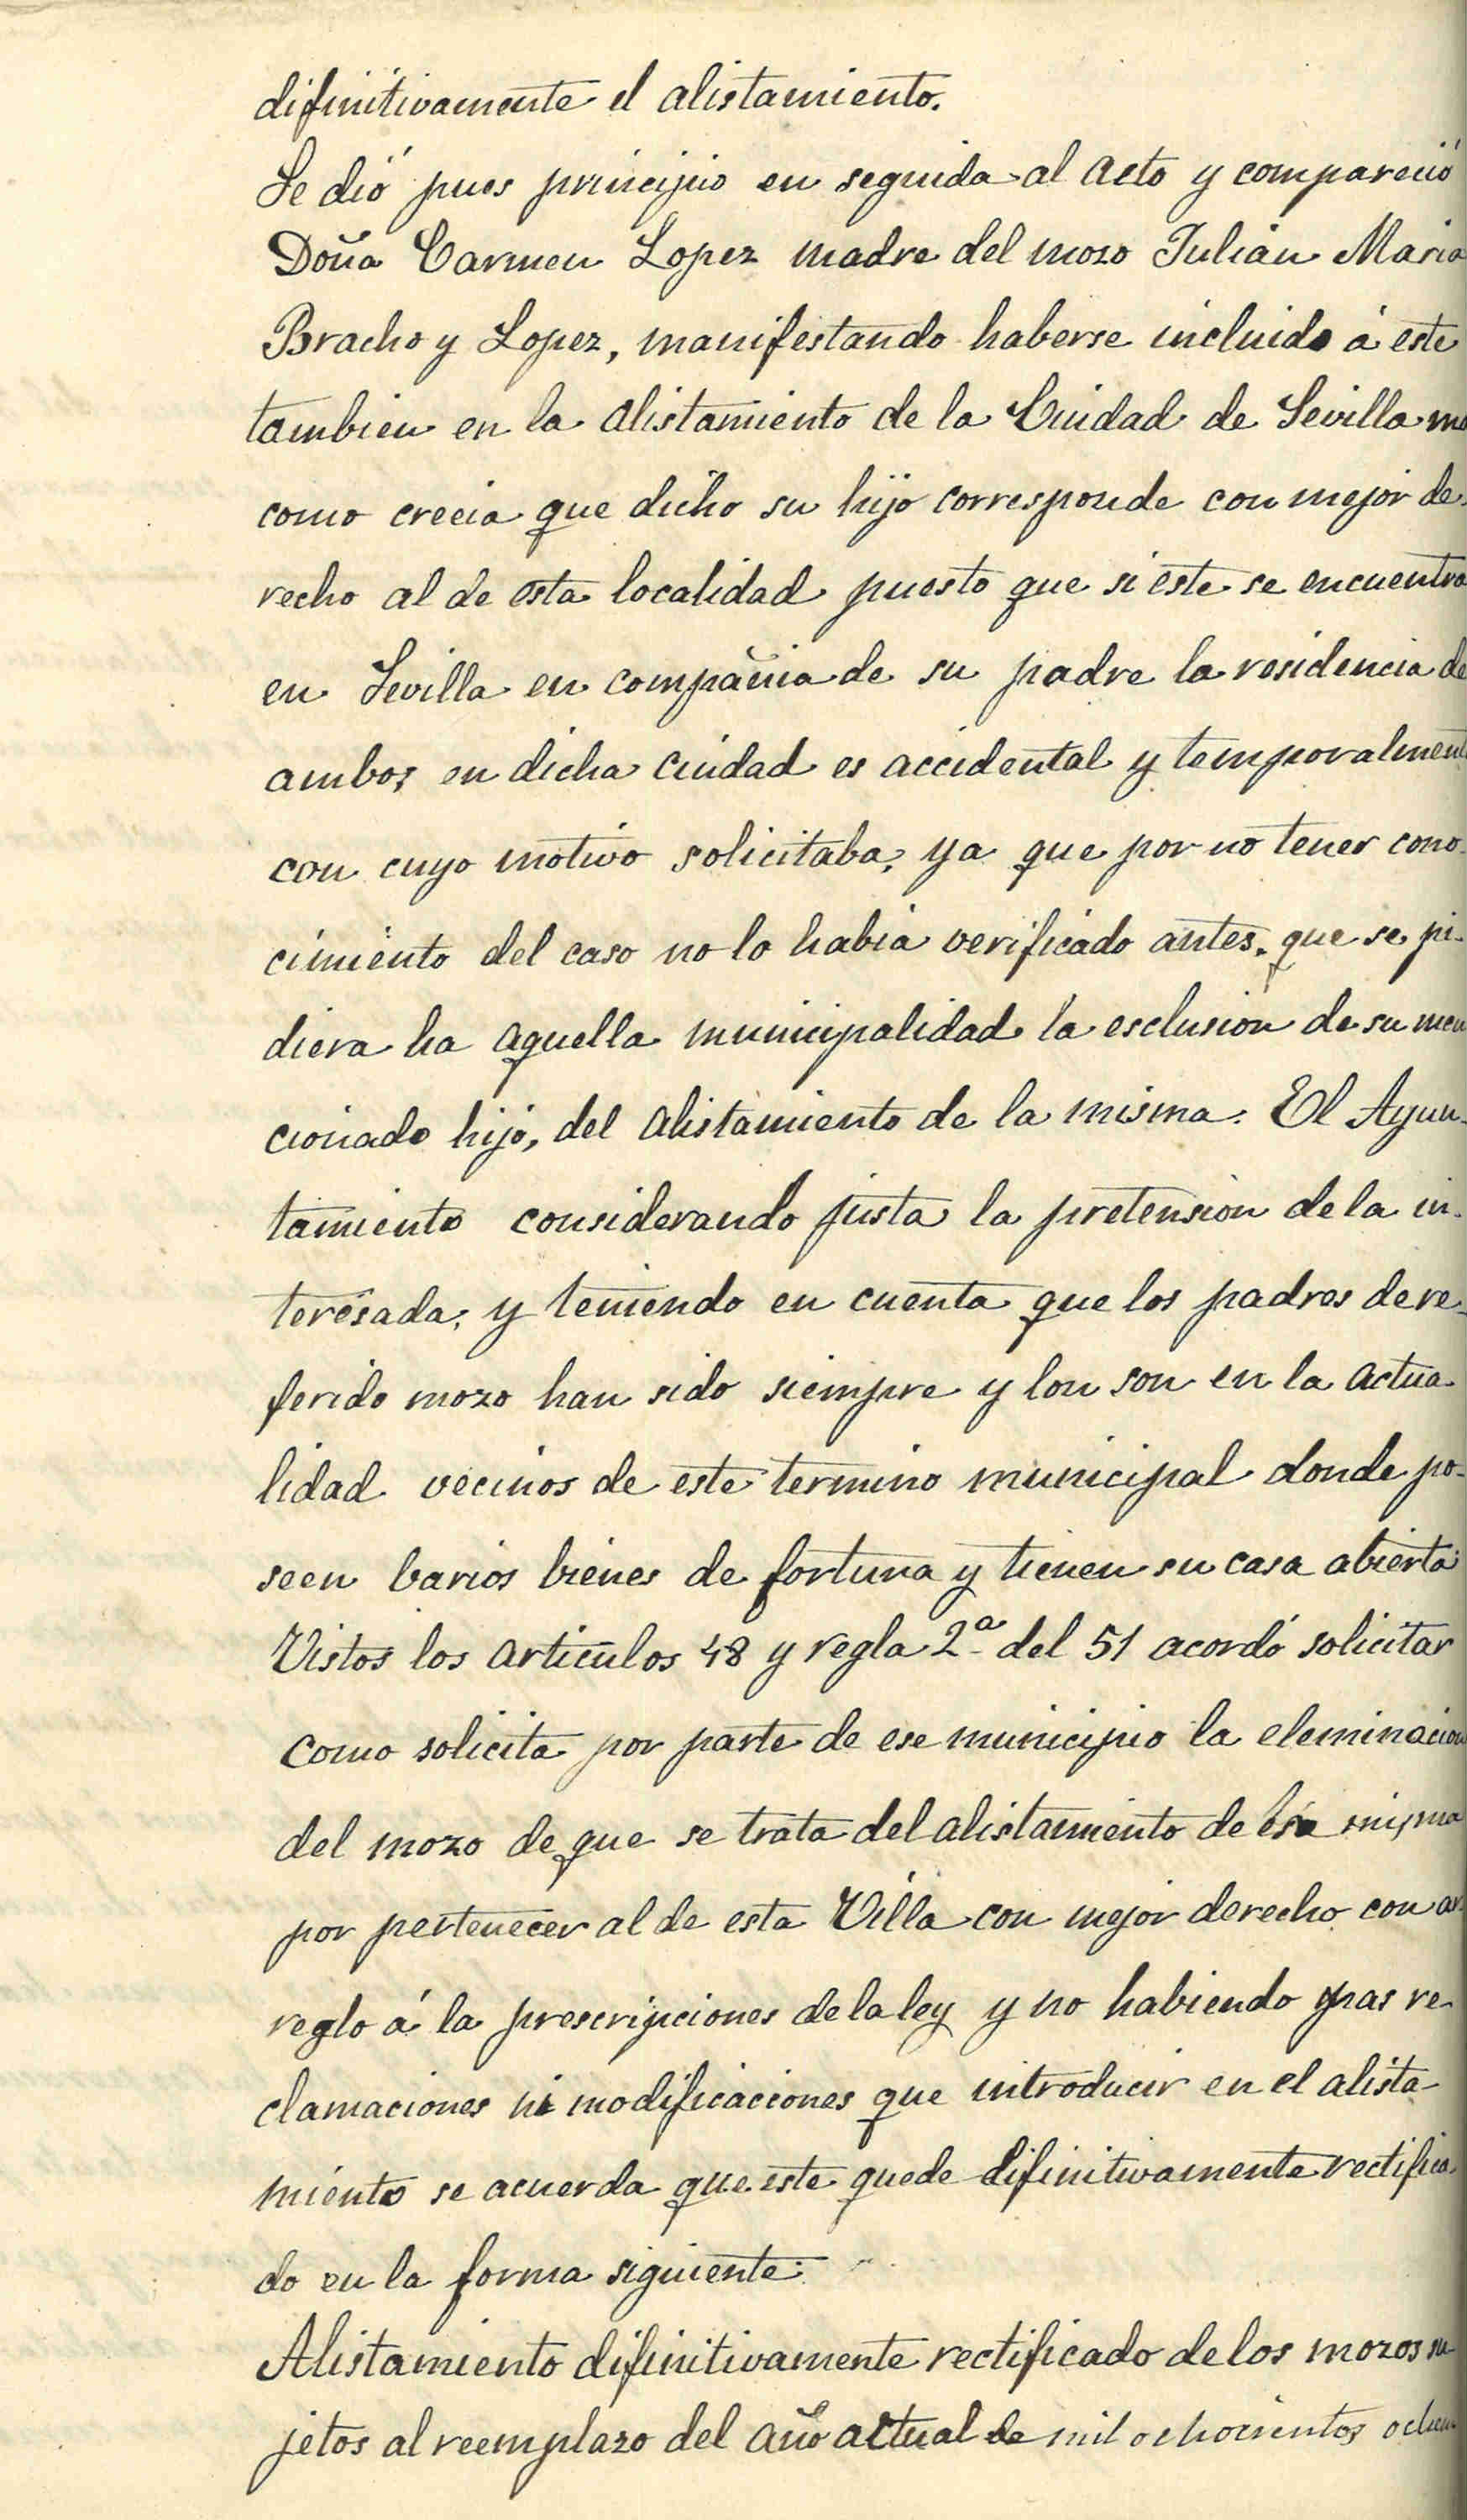 difinitivamente el alistamiento.
Se dió pues principio en seguida al acto y compareció
Doña Carmen Lopez madre del mozo Julián Maria
Bracho y Lopez, manifestando haberse incluido á este
tambien en la alistamiento de la Ciudad de Sevilla
como creeia que dicho su hijo corresponde con mejor de-
recho al de esta localidad puesto que si este se encuentra
en Sevilla en compañia de su padre la residencia de
ambos en dicha ciudad es accidental y temporalment
con cuyo motivo solicitaba, ya que por no tener cono-
cimiento del caso no lo habia verificado antes, que se pi-
diera ha aquella municipalidad la esclusion de su men
cionado hijo, del alistamiento de la misma. El Ayun-
tamiento considerando justa la pretension de la in-
teresada, y teniendo en cuenta que los padres de re-
ferido mozo han sido siempre y lon son en la actua-
lidad vecinos de este termino municipal donde po-
seen barios bienes de fortuna y tienen su casa abierta
Vistos los articulos 48 y regla 2.ª del 51 acordó solicitar
como solicita por parte de ese municipio la eleminacion
del mozo de que se trata del alistamiento de esa misma
por pertenecer al de esta Villa con mejor derecho con ar-
reglo á la prescripciones de la ley y no habiendo mas re-
clamaciones ni modificaciones que introducir en el alista-
miento se acuerda que este quede difinitivamente rectifica-
do en la forma siguiente.
Alistamiento difinitivamente rectificado de los mozos su-
jetos al reemplazo del año actual de mil ochocientos ochen